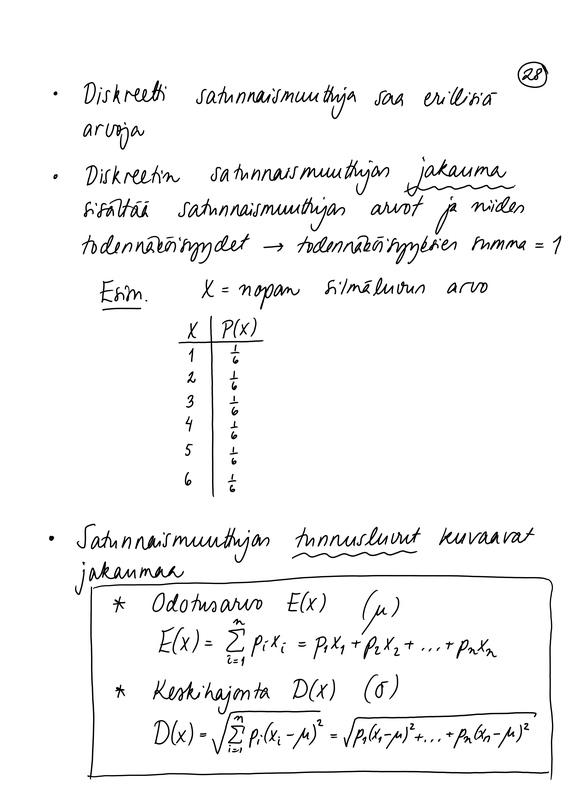 28
• Diskreetti satunnaismuuttuja saa erillisiä
arvoja
• Diskreetin satunnaismuuttujan jakauma
sisältää satunnaismuuttujan arvot ja niiden
todennäköisyydet → todennäköisyyksien summa = 1
Esim. X = nopan silmäluvun arvo
X | P(X)
1 | 1/6
2 | 1/6
3 | 1/6
4 | 1/6
5 | 1/6
6 | 1/6
• Satunnaismuuttujan tunnusluvut kuvaavat
jakaumaa
* Odotusarvo E(X) (μ)
E(X) = ∑_{i=1}^{n} p_i x_i = p₁x₁ + p₂x₂ + ... + pₙxₙ
* Keskihajonta D(X) (σ)
D(X) = √(∑_{i=1}^{n} p_i(x_i − μ)²) = √(p₁(x₁−μ)² + ... + pₙ(xₙ−μ)²)